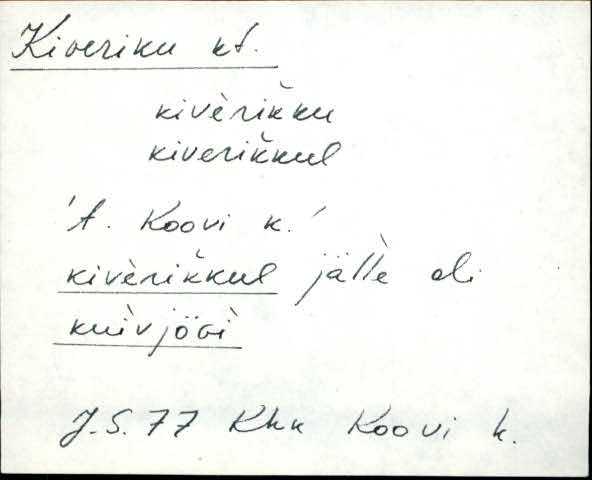 Kiveriku kt.
kivèrikku
kiverikkul
't. Koovi k.'
kivèrikkul jälle oli
kuìvjögì
J.S. 77 Khk Koovi k.